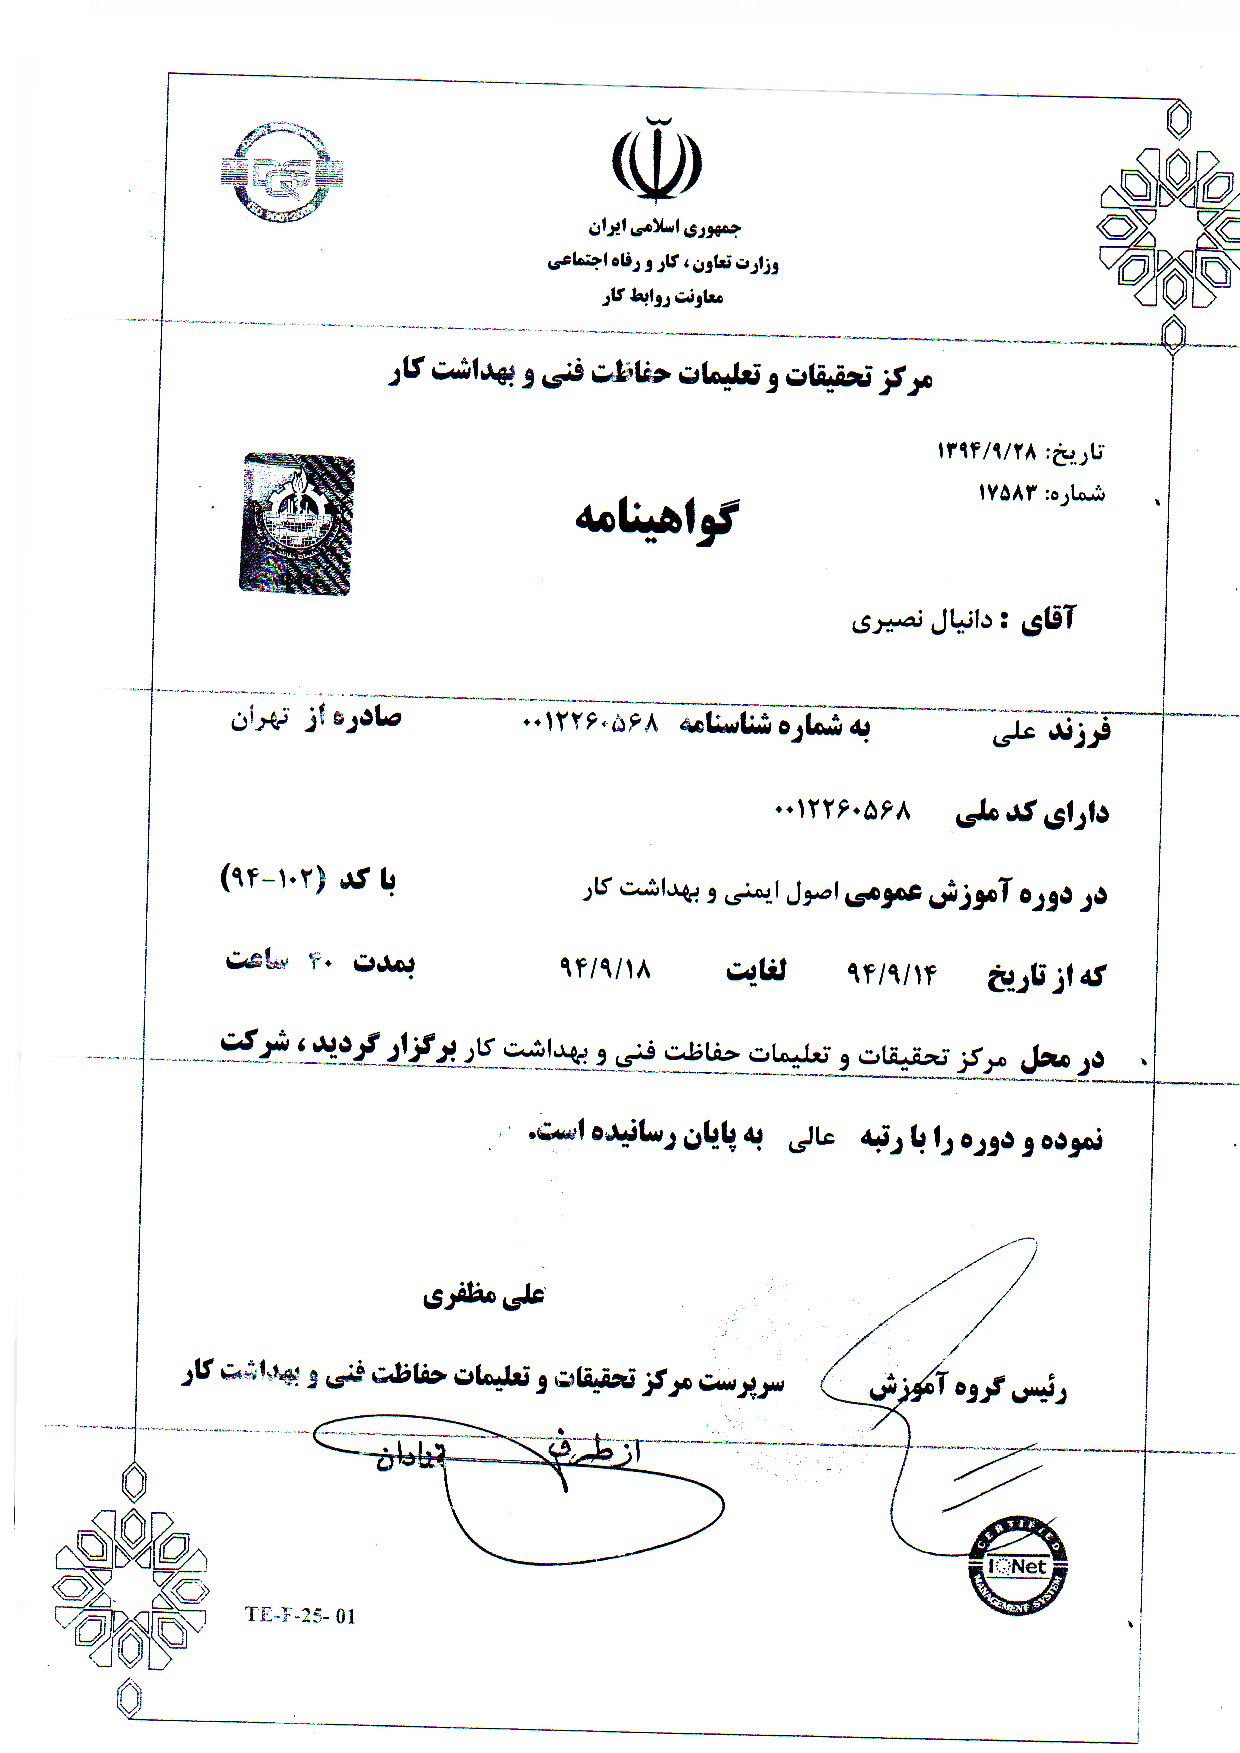 جمهوری اسلامی ایران
وزارت تعاون، کار و رفاه اجتماعی
معاونت روابط کار
مرکز تحقیقات و تعلیمات حفاظت فنی و بهداشت کار
تاریخ: ۱۳۹۴/۹/۲۸
شماره: ۱۷۵۸۳
گواهینامه
آقای : دانیال نصیری
فرزند علی به شماره شناسنامه ۰۰۱۲۲۶۰۵۶۸ صادره از تهران
دارای کد ملی ۰۰۱۲۲۶۰۵۶۸
در دوره آموزش عمومی اصول ایمنی و بهداشت کار با کد (۱۰۲-۹۴)
که از تاریخ ۹۴/۹/۱۴ لغایت ۹۴/۹/۱۸ بمدت ۴۰ ساعت
در محل مرکز تحقیقات و تعلیمات حفاظت فنی و بهداشت کار برگزار گردید، شرکت
نموده و دوره را با رتبه عالی به پایان رسانیده است.
علی مظفری
رئیس گروه آموزش
سرپرست مرکز تحقیقات و تعلیمات حفاظت فنی و بهداشت کار
از طرف
CERTIFIED
IQNet
MANAGEMENT SYSTEM
TE-F-25- 01